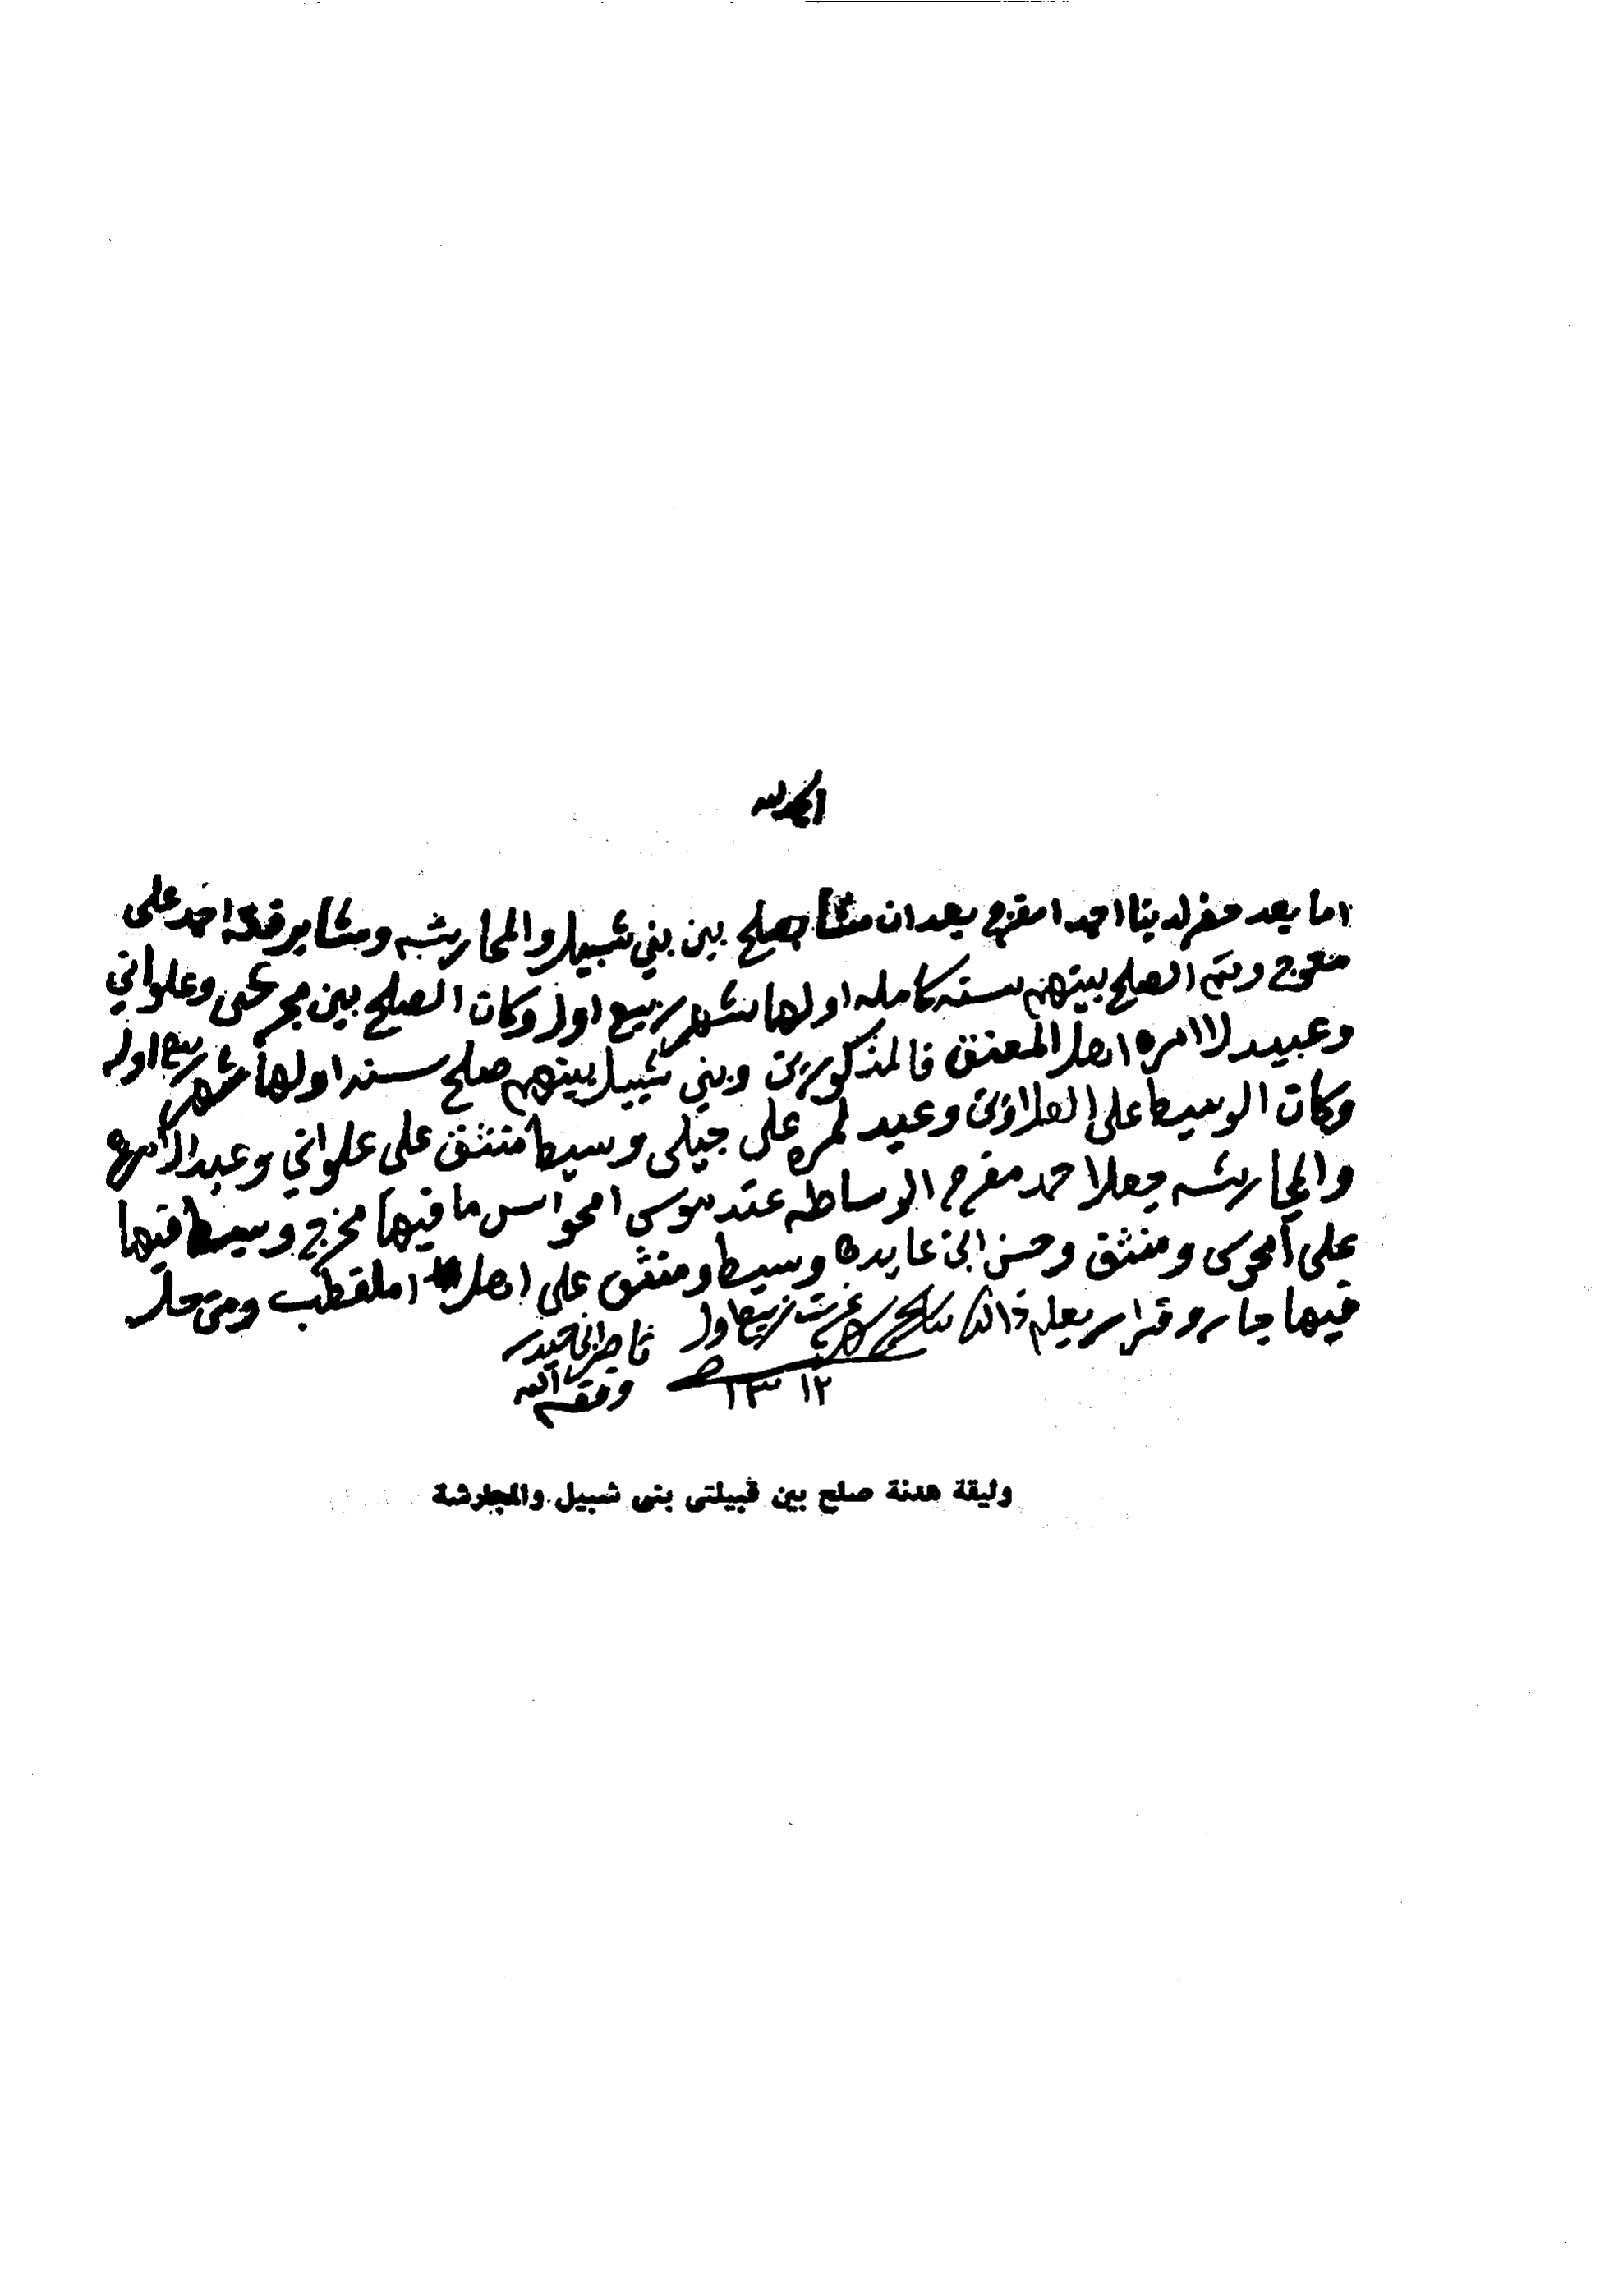 الحمد لله
اما بعد حضر لدينا احمد امفرح بعد ان مشا بصلح بين بني شبيل والمجاريشه ومشا برقدة احمد علي
وتم الصلح بينهم سنه كامله اولها شهر ربيع اول وكان الصلح بين وعلواني
وعبيد لا امره اهل المعنق فالمذكورين وبني شبيل بينهم صلح سنه اولها شهر ربيع اول
وكان الوسيط على العلاوني وعيد لمره علي جبلي وسيط منثق على علواني وعبد الامره
والمجاريشه جعلا حمد مفرح الوساطه عند موسى امحواس ما فيها مخرج وسيط فيها
على ومنثق وحسن ابن عابده وسيط ومنثق على اهل املقطب ومتى حل
فيها جار وقرار يعلم ذالك ربيع اول ناصر ابن حيدر
١٣١٢ وفقه الله
وثيقة هدنة صلح بين قبيلتى بنى شبيل والمجارشة